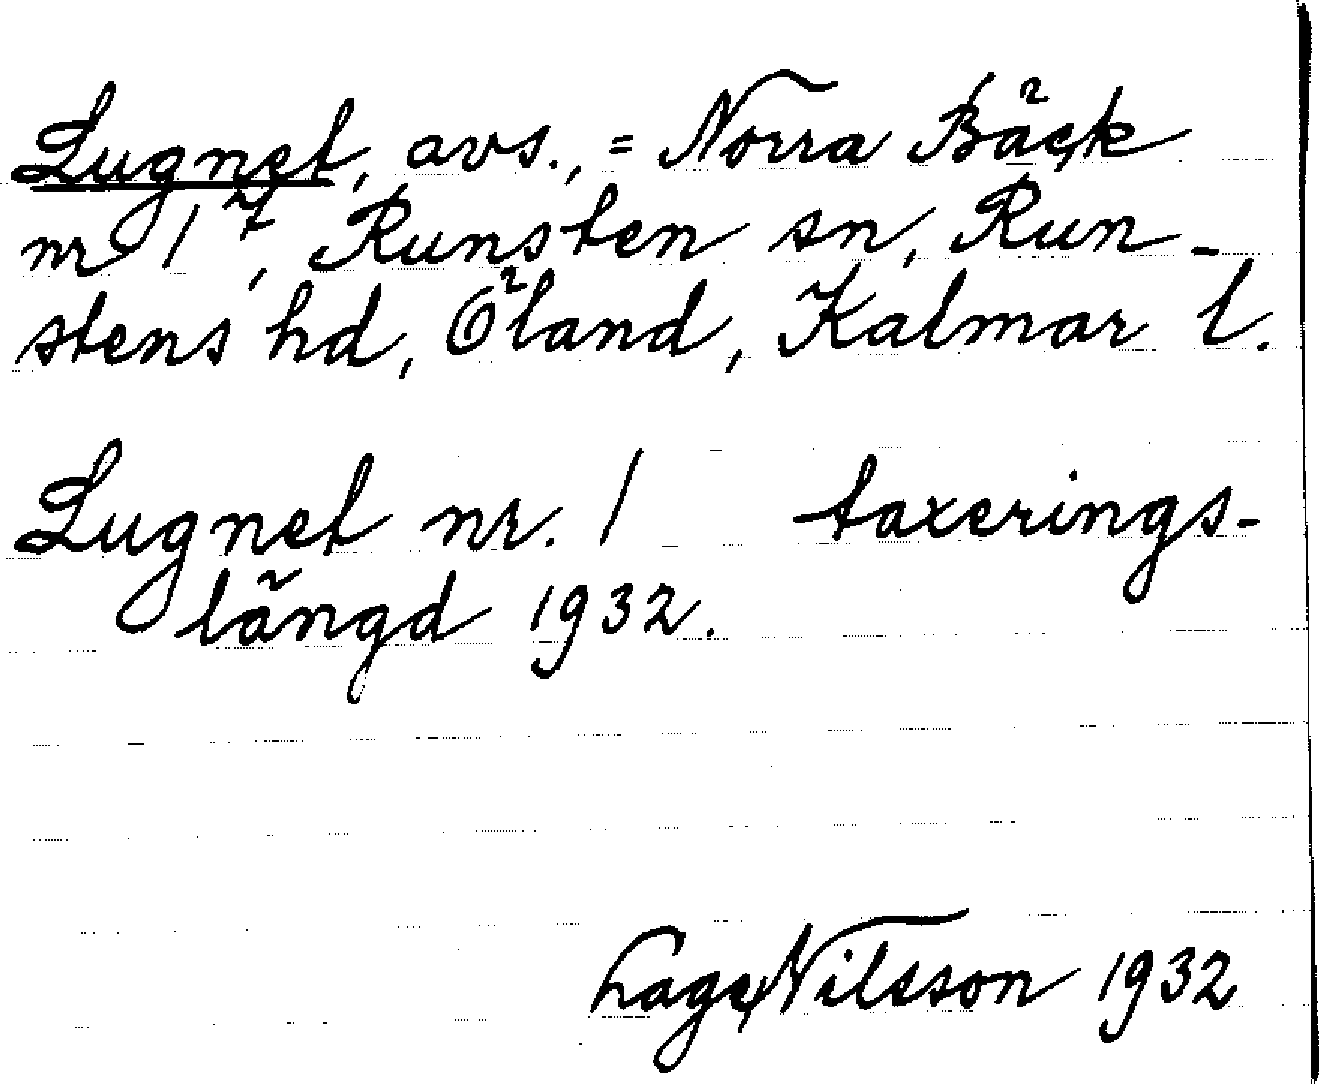 Lugnet, avs., = Norra Bäck
nr 1⁷, Runsten sn, Run-
stens hd, Öland, Kalmar l.
Lugnet nr. 1 taxerings-
längd 1932.
Lage Nilsson 1932